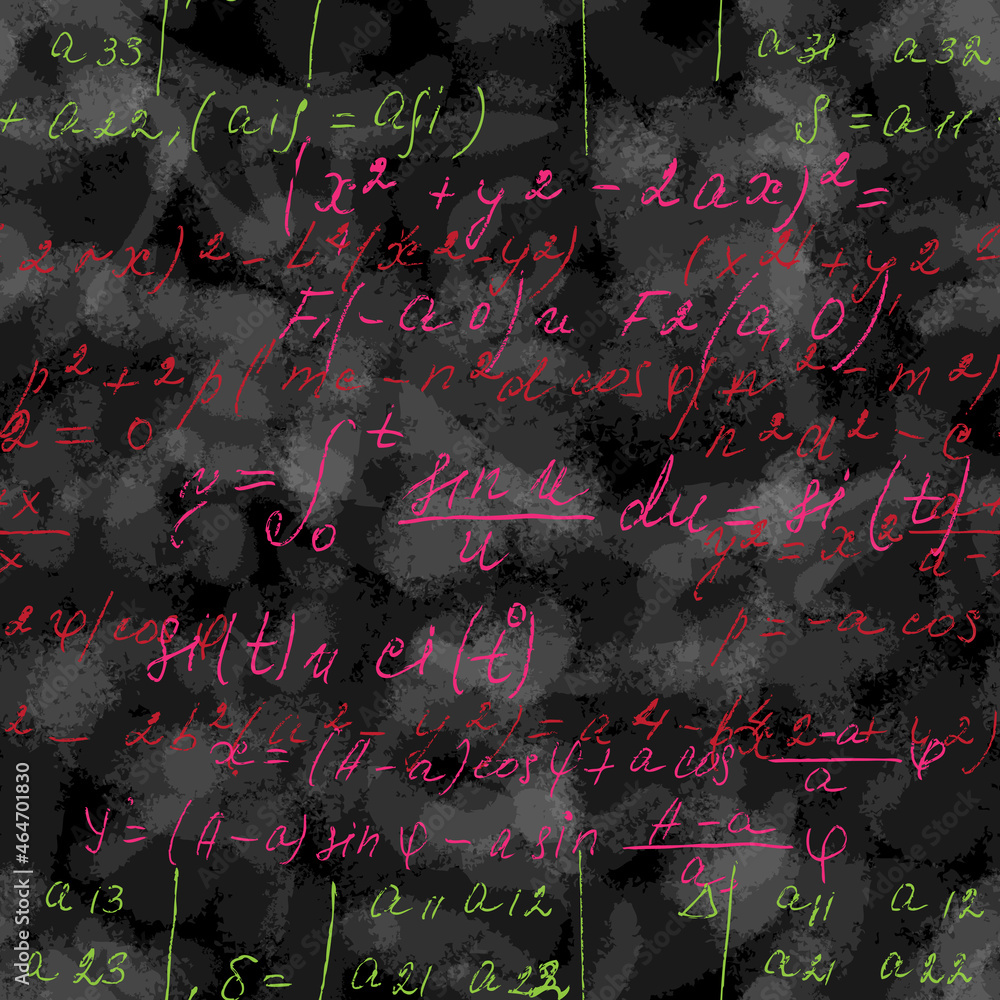 a 33 a 31 a 32
+ a 22, (a ij = a ji) S = a 11
(x² + y 2 - 2 a x)² =
2 a x)² - L⁴ (x² - y 2) (x² + y 2
F1 (-a 0) u F2 (a, 0),
p² + 2 p (mc - n² d cos φ) n² - m²)
2 = 0 n² d² - c
y = ∫₀ᵗ sin u / u du = si (t)
+ x / x y² = x² a + / a -
2 φ / cos φ p = - a cos
si (t) u ci (t)
2 - 2 b² (a² - y 2) = a⁴ - b⁴ y 2)
x = (A - a) cos φ + a cos A - a / a φ
y = (A - a) sin φ - a sin A - a / a φ
a 13 a 11 a 12 Δ = a 11 a 12
a 23, δ = a 21 a 22 a 21 a 22
Adobe Stock | #464701830